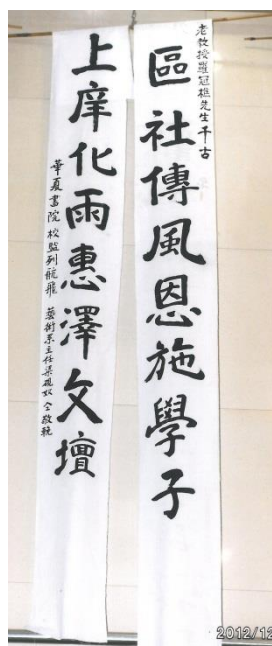 老教授羅冠樵先生千古
區社傳風恩施學子
上庠化雨惠澤文壇
華夏書院 校監列航飛 藝術系主任梁硯奴 仝敬輓
2012/12